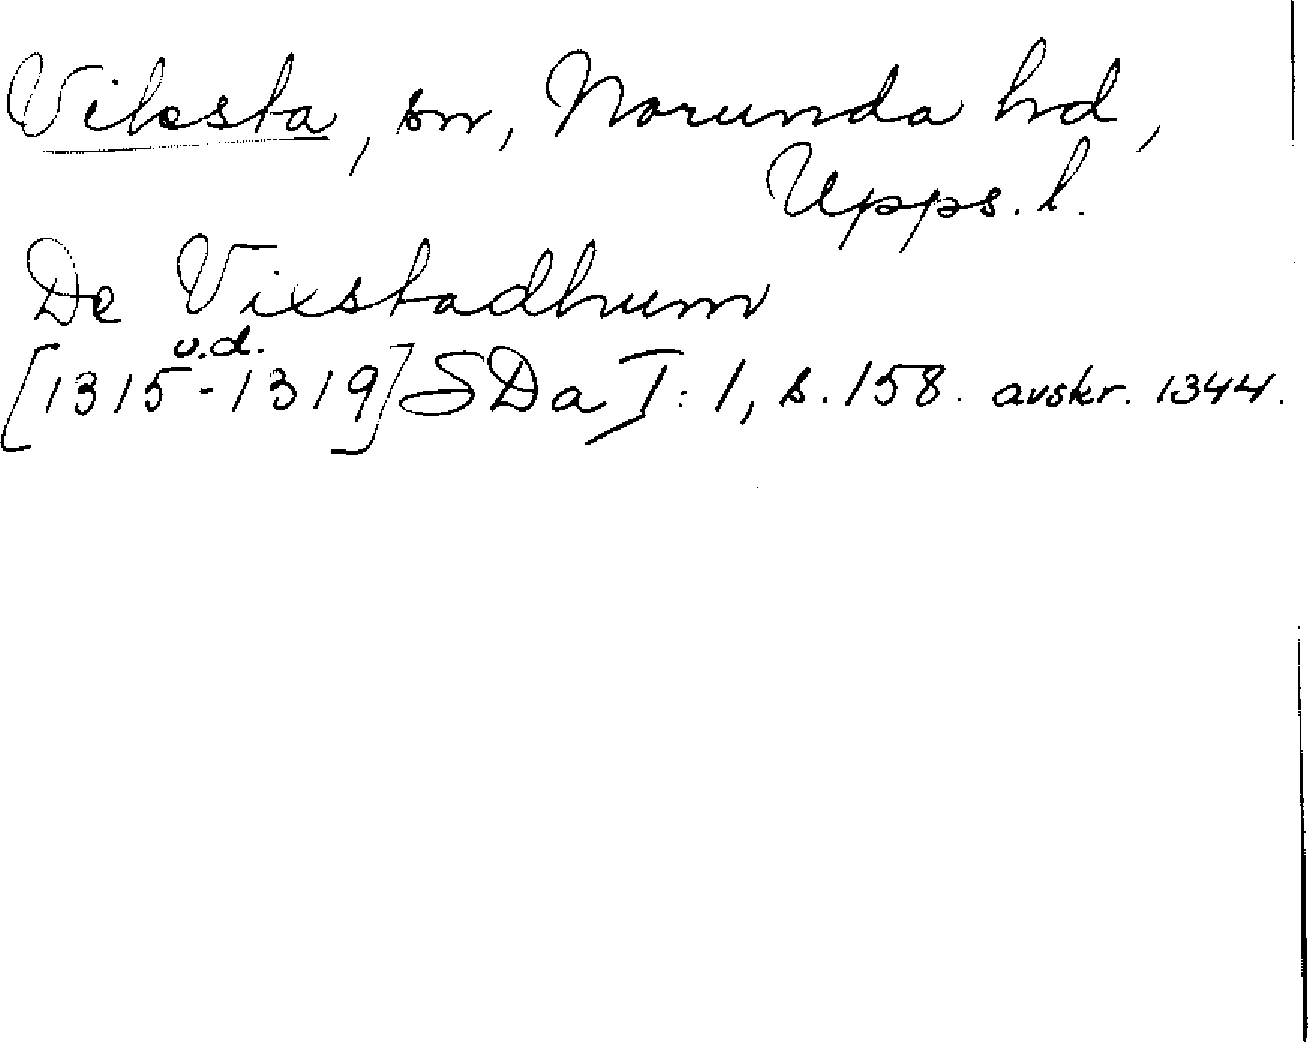 Viksta, sn, Norunda hd,
Upps. l.
De Vixstadhum
u.d.
[1315-1319] SDa I:1, s. 158. avskr. 1344.